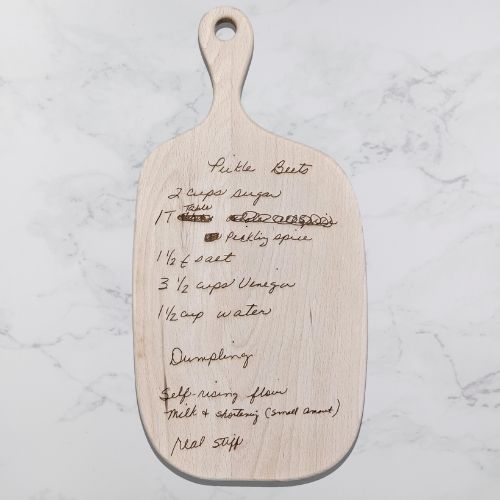 Pickle Beets
2 cups sugar
1 T Table
Pickling spice
1 1/2 t salt
3 1/2 cups Vinegar
1 1/2 cup water
Dumpling
Self-rising flour
Milk & shortening (small amount)
real stiff